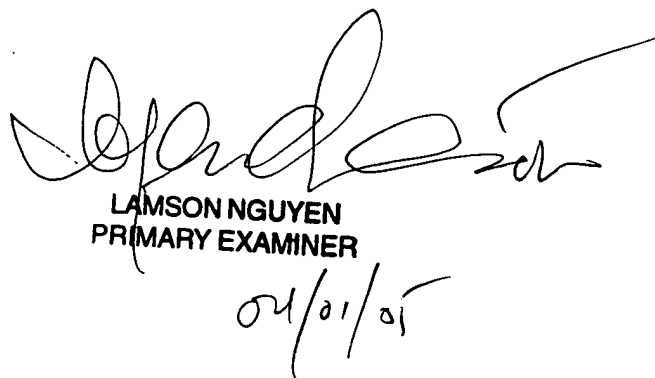 LAMSON NGUYEN
PRIMARY EXAMINER
04/01/05